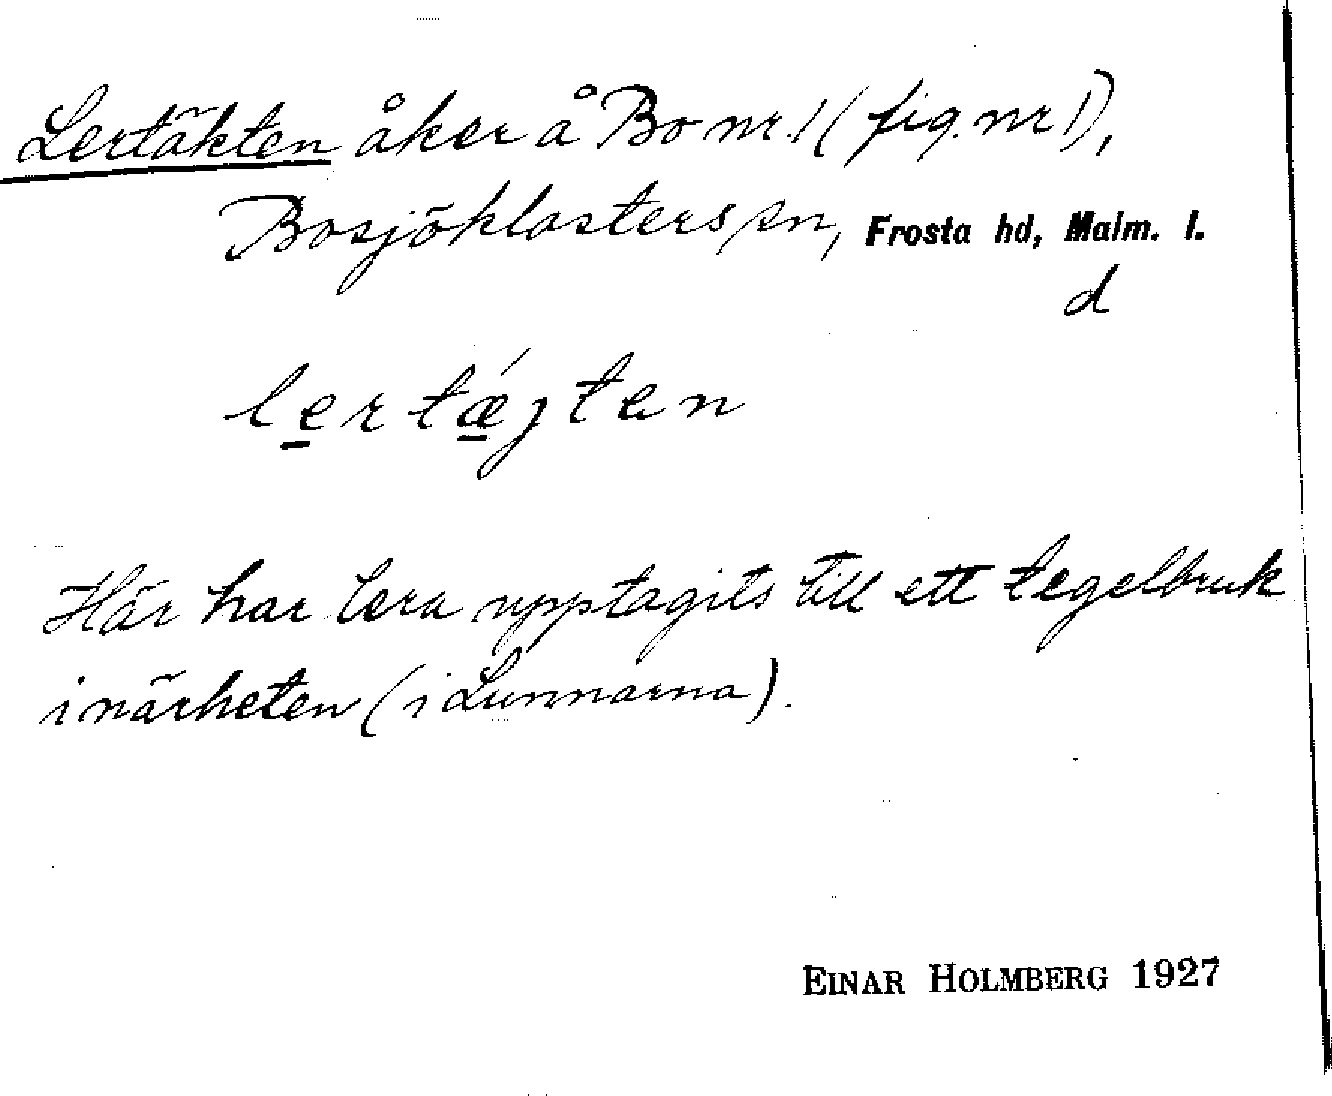 Lertäkten åker å Bo nr 1 (fig. nr 1),
Bosjöklosters sn, Frosta hd, Malm. l.
d
lertǽjten
Här har lera upptagits till ett tegelbruk
i närheten (i Lunnarna).
EINAR HOLMBERG 1927